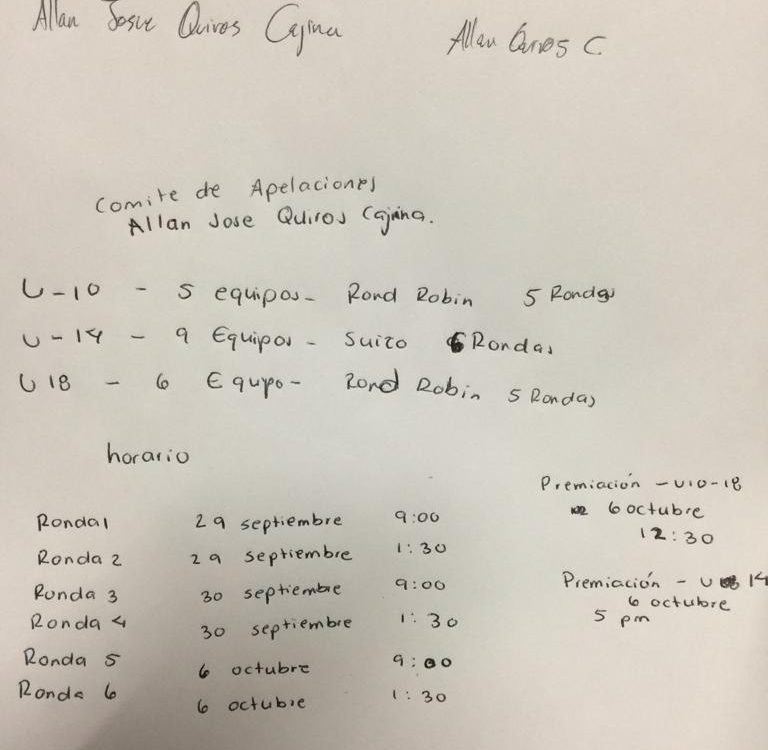 Allan Josue Quiros Cajina
Allan Quiros C
Comite de Apelaciones
Allan Jose Quiros Cajina.
U-10 - 5 equipos - Rond Robin 5 Rondas
U-14 - 9 Equipos - Suizo 6 Rondas
U 18 - 6 Equipo - Rond Robin 5 Rondas
horario
Ronda 1 29 septiembre 9:00
Ronda 2 29 septiembre 1:30
Ronda 3 30 septiembre 9:00
Ronda 4 30 septiembre 1:30
Ronda 5 6 octubre 9:00
Ronda 6 6 octubre 1:30
Premiación - U10-18
6 octubre
12:30
Premiación - U 14
6 octubre
5 pm